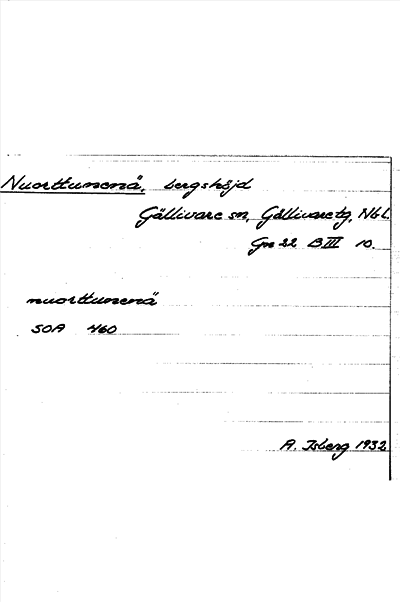 Nuorttunenä, bergshöjd
Gällivare sn, Gällivare tg, Nbl.
Gn 22 B III 10.
nuorttunenä
SOA 460
A. Isberg 1932